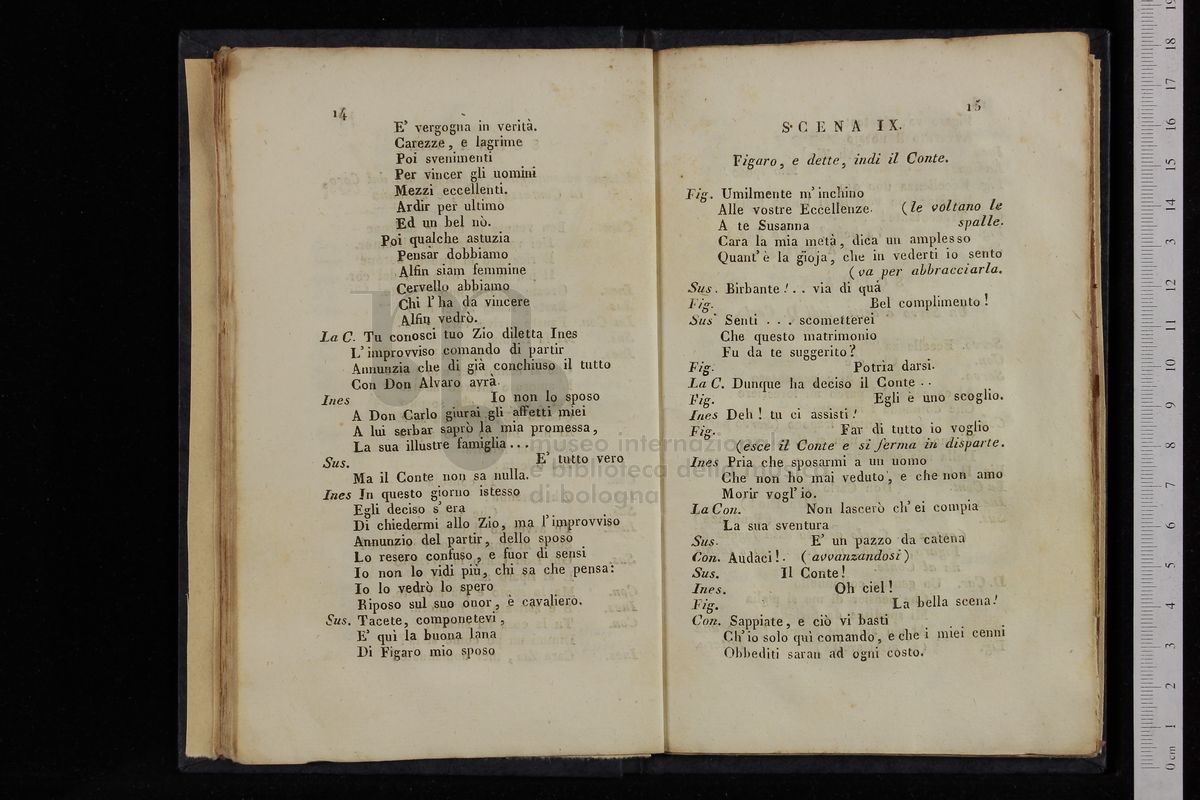 14
E' vergogna in verità.
Carezze, e lagrime
Poi svenimenti
Per vincer gli uomini
Mezzi eccellenti.
Ardir per ultimo
Ed un bel nò.
Poi qualche astuzia
Pensar dobbiamo
Alfin siam femmine
Cervello abbiamo
Chi l'ha da vincere
Alfin vedrò.
La C. Tu conosci tuo Zio diletta Ines
L'improvviso comando di partir
Annunzia che di già conchiuso il tutto
Con Don Alvaro avrà.
Ines Io non lo sposo
A Don Carlo giurai gli affetti miei
A lui serbar saprò la mia promessa,
La sua illustre famiglia...
Sus. E' tutto vero
Ma il Conte non sa nulla.
Ines In questo giorno istesso
Egli deciso s'era
Di chiedermi allo Zio, ma l'improvviso
Annunzio del partir, dello sposo
Lo resero confuso, e fuor di sensi
Io non lo vidi più, chi sa che pensa:
Io lo vedrò lo spero
Riposo sul suo onor, è cavaliero.
Sus. Tacete, componetevi,
E' quì la buona lana
Di Figaro mio sposo
15
SCENA IX.
Figaro, e dette, indi il Conte.
Fig. Umilmente m'inchino
Alle vostre Eccellenze. (le voltano le
A te Susanna spalle.
Cara la mia metà, dica un amplesso
Quant'è la gioja, che in vederti io sento
(va per abbracciarla.
Sus. Birbante!.. via di quà
Fig. Bel complimento!
Sus Senti ... scometterei
Che questo matrimonio
Fu da te suggerito?
Fig. Potria darsi.
La C. Dunque ha deciso il Conte..
Fig. Egli è uno scoglio.
Ines Deh! tu ci assisti!
Fig. Far di tutto io voglio
(esce il Conte e si ferma in disparte.
Ines Pria che sposarmi a un uomo
Che non ho mai veduto, e che non amo
Morir vogl'io.
La Con. Non lascerò ch'ei compia
La sua sventura
Sus. E' un pazzo da catena
Con. Audaci!. (avvanzandosi)
Sus. Il Conte!
Ines. Oh ciel!
Fig. La bella scena!
Con. Sappiate, e ciò vi basti
Ch'io solo quì comando, e che i miei cenni
Obbediti saran ad ogni costo.
museo internazionale
e biblioteca della musica
di bologna
0 cm 1 2 3 4 5 6 7 8 9 10 11 12 13 14 15 16 17 18 19